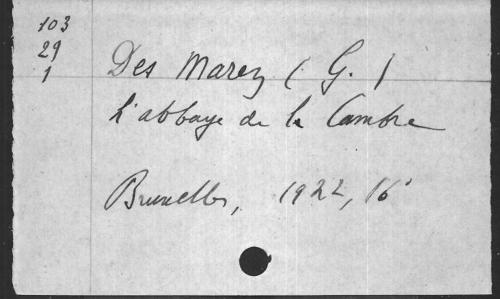 103
29
1
Des Marez (G.)
L'abbaye de la Cambre
Bruxelles, 1922, 16°